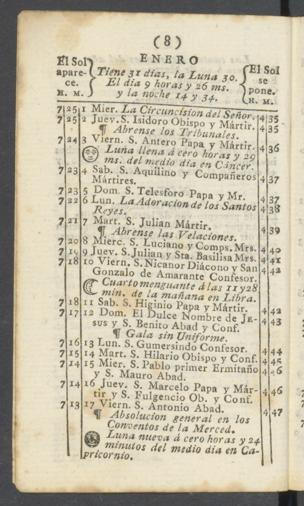 (8)
ENERO
El Sol aparece. H. M.
Tiene 31 dias, la Luna 30.
El dia 9 horas y 26 ms.
y la noche 14 y 34.
El Sol se pone. H. M.
7 25 1 Mier. La Circuncision del Señor. 4 35
7 25 2 Juev. S. Isidoro Obispo y Mártir. 4 35
¶ Abrense los Tribunales.
7 24 3 Viern. S. Antero Papa y Mártir. 4 36
Luna llena á cero horas y 29
ms. del medio dia en Cáncer.
7 23 4 Sab. S. Aquilino y Compañeros 4 37
Mártires.
7 23 5 Dom. S. Telesforo Papa y Mr. 4 37
7 22 6 Lun. La Adoracion de los Santos 4 38
Reyes.
7 21 7 Mart. S. Julian Mártir. 4 39
¶ Abrense las Velaciones.
7 20 8 Mierc. S. Luciano y Comps. Mrs. 4
7 19 9 Juev. S. Julian y Sta. Basilisa Mrs. 4 41
7 18 10 Viern. S. Nicanor Diácono y San 4 42
Gonzalo de Amarante Confesor.
Cuarto menguante á las 11 y 28
min. de la mañana en Libra.
7 18 11 Sab. S. Higinio Papa y Mártir. 4 42
7 17 12 Dom. El Dulce Nombre de Je- 4 43
sus y S. Benito Abad y Conf.
¶ Gala sin Uniforme.
7 16 13 Lun. S. Gumersindo Confesor. 4 44
7 15 14 Mart. S. Hilario Obispo y Conf. 4 45
7 14 15 Mier. S. Pablo primer Ermitaño 4 46
y S. Mauro Abad.
7 14 16 Juev. S. Marcelo Papa y Már- 4 46
tir y S. Fulgencio Ob. y Conf.
7 13 17 Viern. S. Antonio Abad. 4 47
¶ Absolucion general en los
Conventos de la Merced.
Luna nueva á cero horas y 24
minutos del medio dia en Ca-
pricornio.